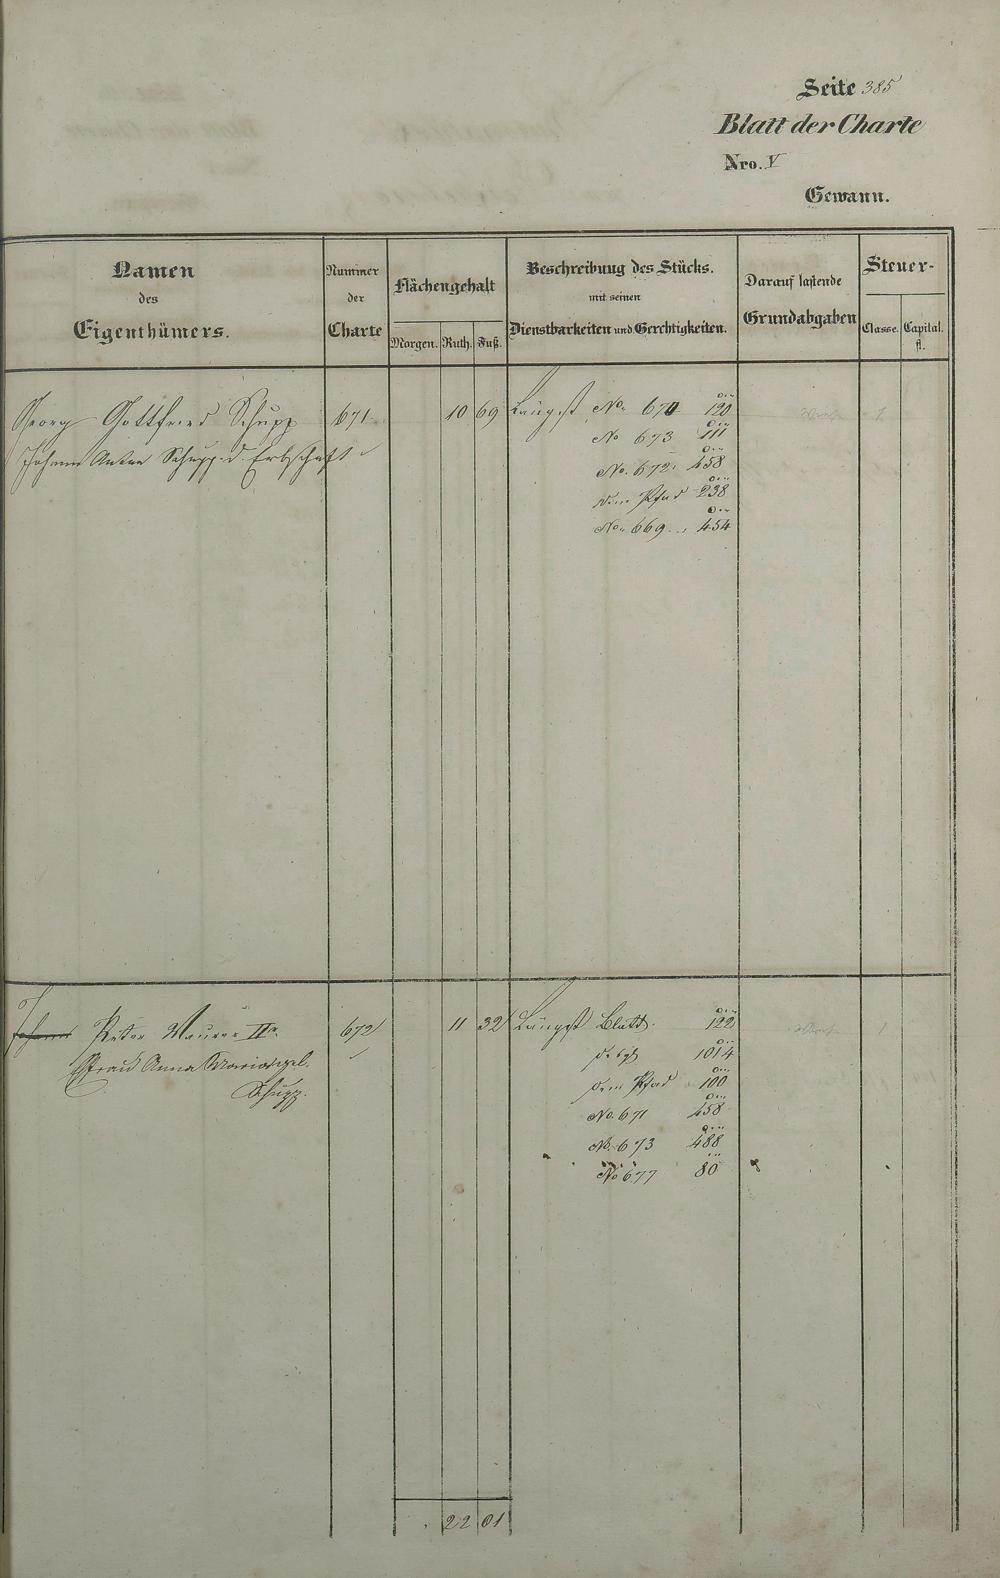 Seite 385
Blatt der Charte
Nro. V
Gewann.
Namen des Eigenthümers.
Nummer der Charte
Flächengehalt
Morgen. Ruth. Fuß.
Beschreibung des Stücks.
mit seinen
Dienstbarkeiten und Gerechtigkeiten.
Darauf lastende
Grundabgaben
Steuer-
Classe. Capital.
fl.
Georg Gottfried Schupp 671 10 69 Längst No. 670 120
No 673 111
Johann Anton Schupp d. Erbschaft
No. 672 458
dem Pfad 238
No. 669 454
Johann Peter Maurer IIr 672 11 32 Längst Blatt 122
Ehefrau Anna Maria gel. dsgl 1014
Schupp. dem Pfad 100
No. 671 458
No. 673 488
No 677 80
22 01